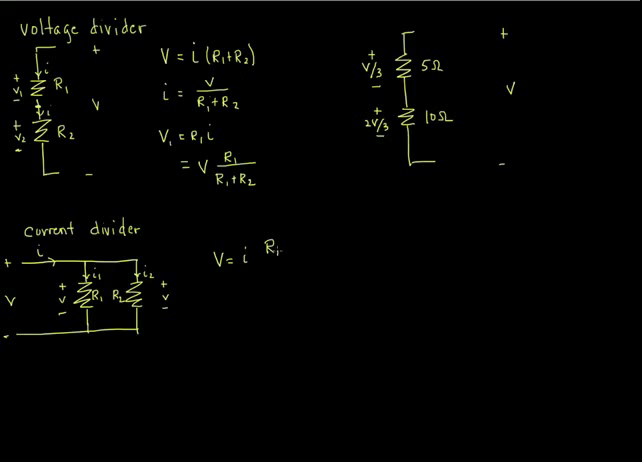 voltage divider
+
i
+
V₁
-
R₁
V
i
+
V₂
-
R₂
-
V = i (R₁+R₂)
i = V / R₁+R₂
V₁ = R₁ i
= V R₁ / R₁+R₂
+
+
V/3
-
5Ω
V
+
2V/3
-
10Ω
-
current divider
i
+
i₁
i₂
V
+
V
-
R₁
R₂
+
V
-
-
V = i R₁